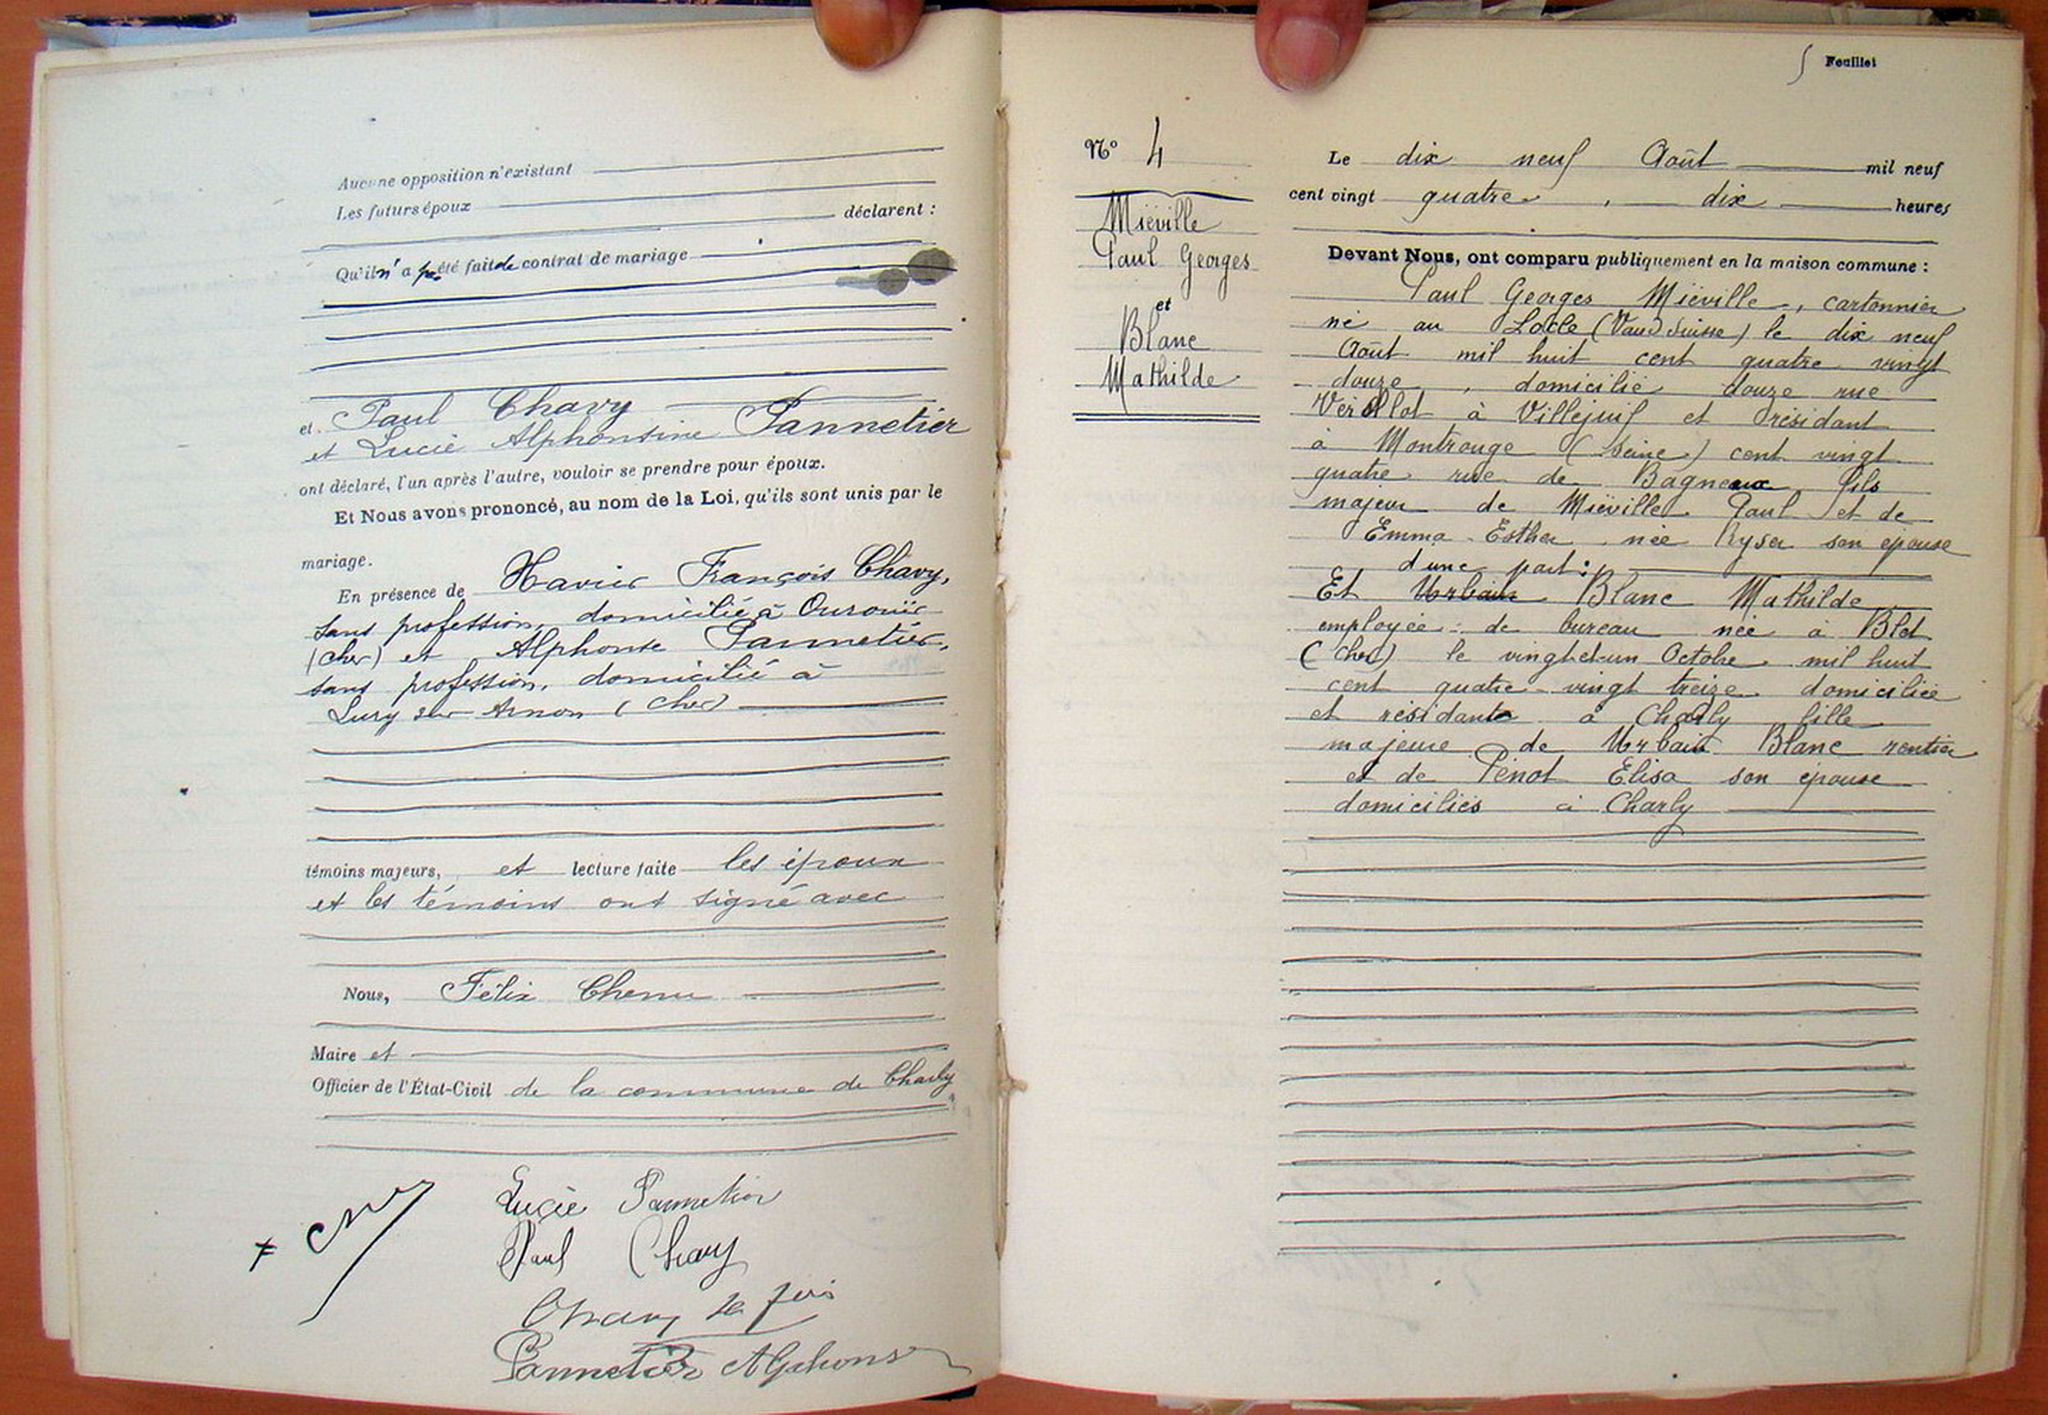 Aucune opposition n'existant
Les futurs époux déclarent :
Qu'il n' a pas été fait de contrat de mariage
et Paul Chavy
et Lucie Alphonsine Pannetier
ont déclaré, l'un après l'autre, vouloir se prendre pour époux.
Et Nous avons prononcé, au nom de la Loi, qu'ils sont unis par le
mariage.
En présence de Xavier François Chavy,
sans profession, domicilié à Ourouër
(Cher) et Alphonse Pannetier,
sans profession, domicilié à
Lury sur Arnon (Cher)
témoins majeurs, et lecture faite les époux
et les témoins ont signé avec
Nous, Félix Chenu
Maire et
Officier de l'État-Civil de la commune de Charly
Lucie Pannetier
Paul Chavy
Chavy
Pannetier Alphonse
Feuillet
N° 4
Miéville
Paul Georges
et
Blanc
Mathilde
Le dix neuf Août mil neuf
cent vingt quatre, dix heures
Devant Nous, ont comparu publiquement en la maison commune :
Paul Georges Miéville, cartonnier
né au Locle (Vaud Suisse) le dix neuf
Août mil huit cent quatre vingt
douze, domicilié douze rue
Vérollot à Villejuif et résidant
à Montrouge (Seine) cent vingt
quatre rue de Bagneux fils
majeur de Miéville Paul et de
Emma Esther née Ryser son épouse
d'une part :
Et Urbain Blanc Mathilde
employée de bureau née à Blet
(Cher) le vingt et un Octobre mil huit
cent quatre-vingt treize domiciliée
et résidante à Charly fille
majeure de Urbain Blanc rentier
et de Pénot Elisa son épouse
domiciliés à Charly